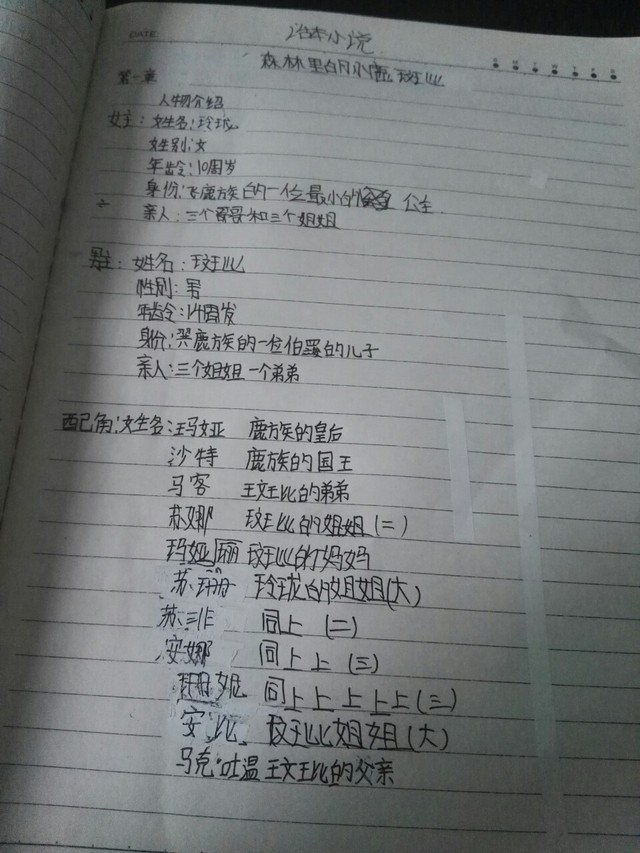 DATE
治木小说
森林里的小鹿斑比
第一章
人物介绍
女主:姓名:玲珑
姓别:女
年龄:10周岁
身份:飞鹿族的一位最小的 公主
亲人:三个哥哥和三个姐姐
男主:姓名:斑比
性别:男
年龄:14周岁
身份:哭鹿族的一位伯爵的儿子
亲人:三个姐姐一个弟弟
配角:姓名:玛娅 鹿族的皇后
沙特 鹿族的国王
马客 斑比的弟弟
苏娜 斑比的姐姐(二)
玛娅丽 斑比的妈妈
苏珊 玲珑的姐姐(大)
苏菲 同上(二)
安娜 同上上(三)
珊妮 同上上上上(三)
安比 斑比姐姐(大)
马克·吐温 斑比的父亲